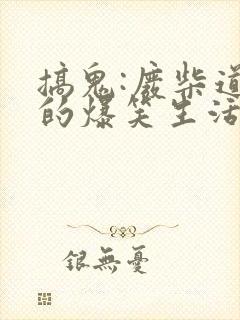 搞鬼:廢柴道
的爆笑生活
銀無憂